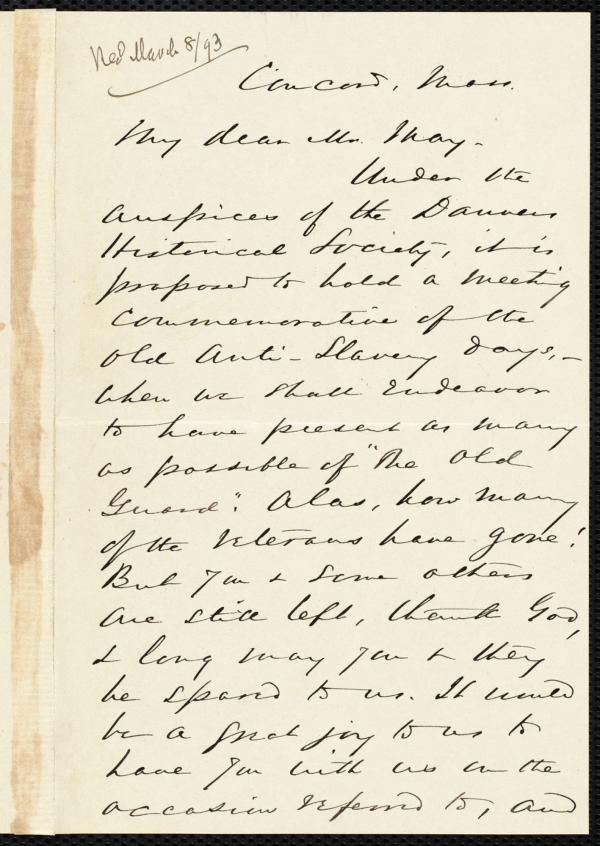 Rec'd March 8/93
Concord, Mass.
My dear Mr. May.
Under the
auspices of the Danvers
Historical Society, it is
proposed to hold a meeting
commemorative of the
old Anti-Slavery days,—
when we shall endeavor
to have present as many
as possible of "the old
Guard". Alas, how many
of the veterans have gone!
But you & some others
are still left, thank God,
& long may you & they
be spared to us. It would
be a great joy to us to
have you with us on the
occasion referred to, and